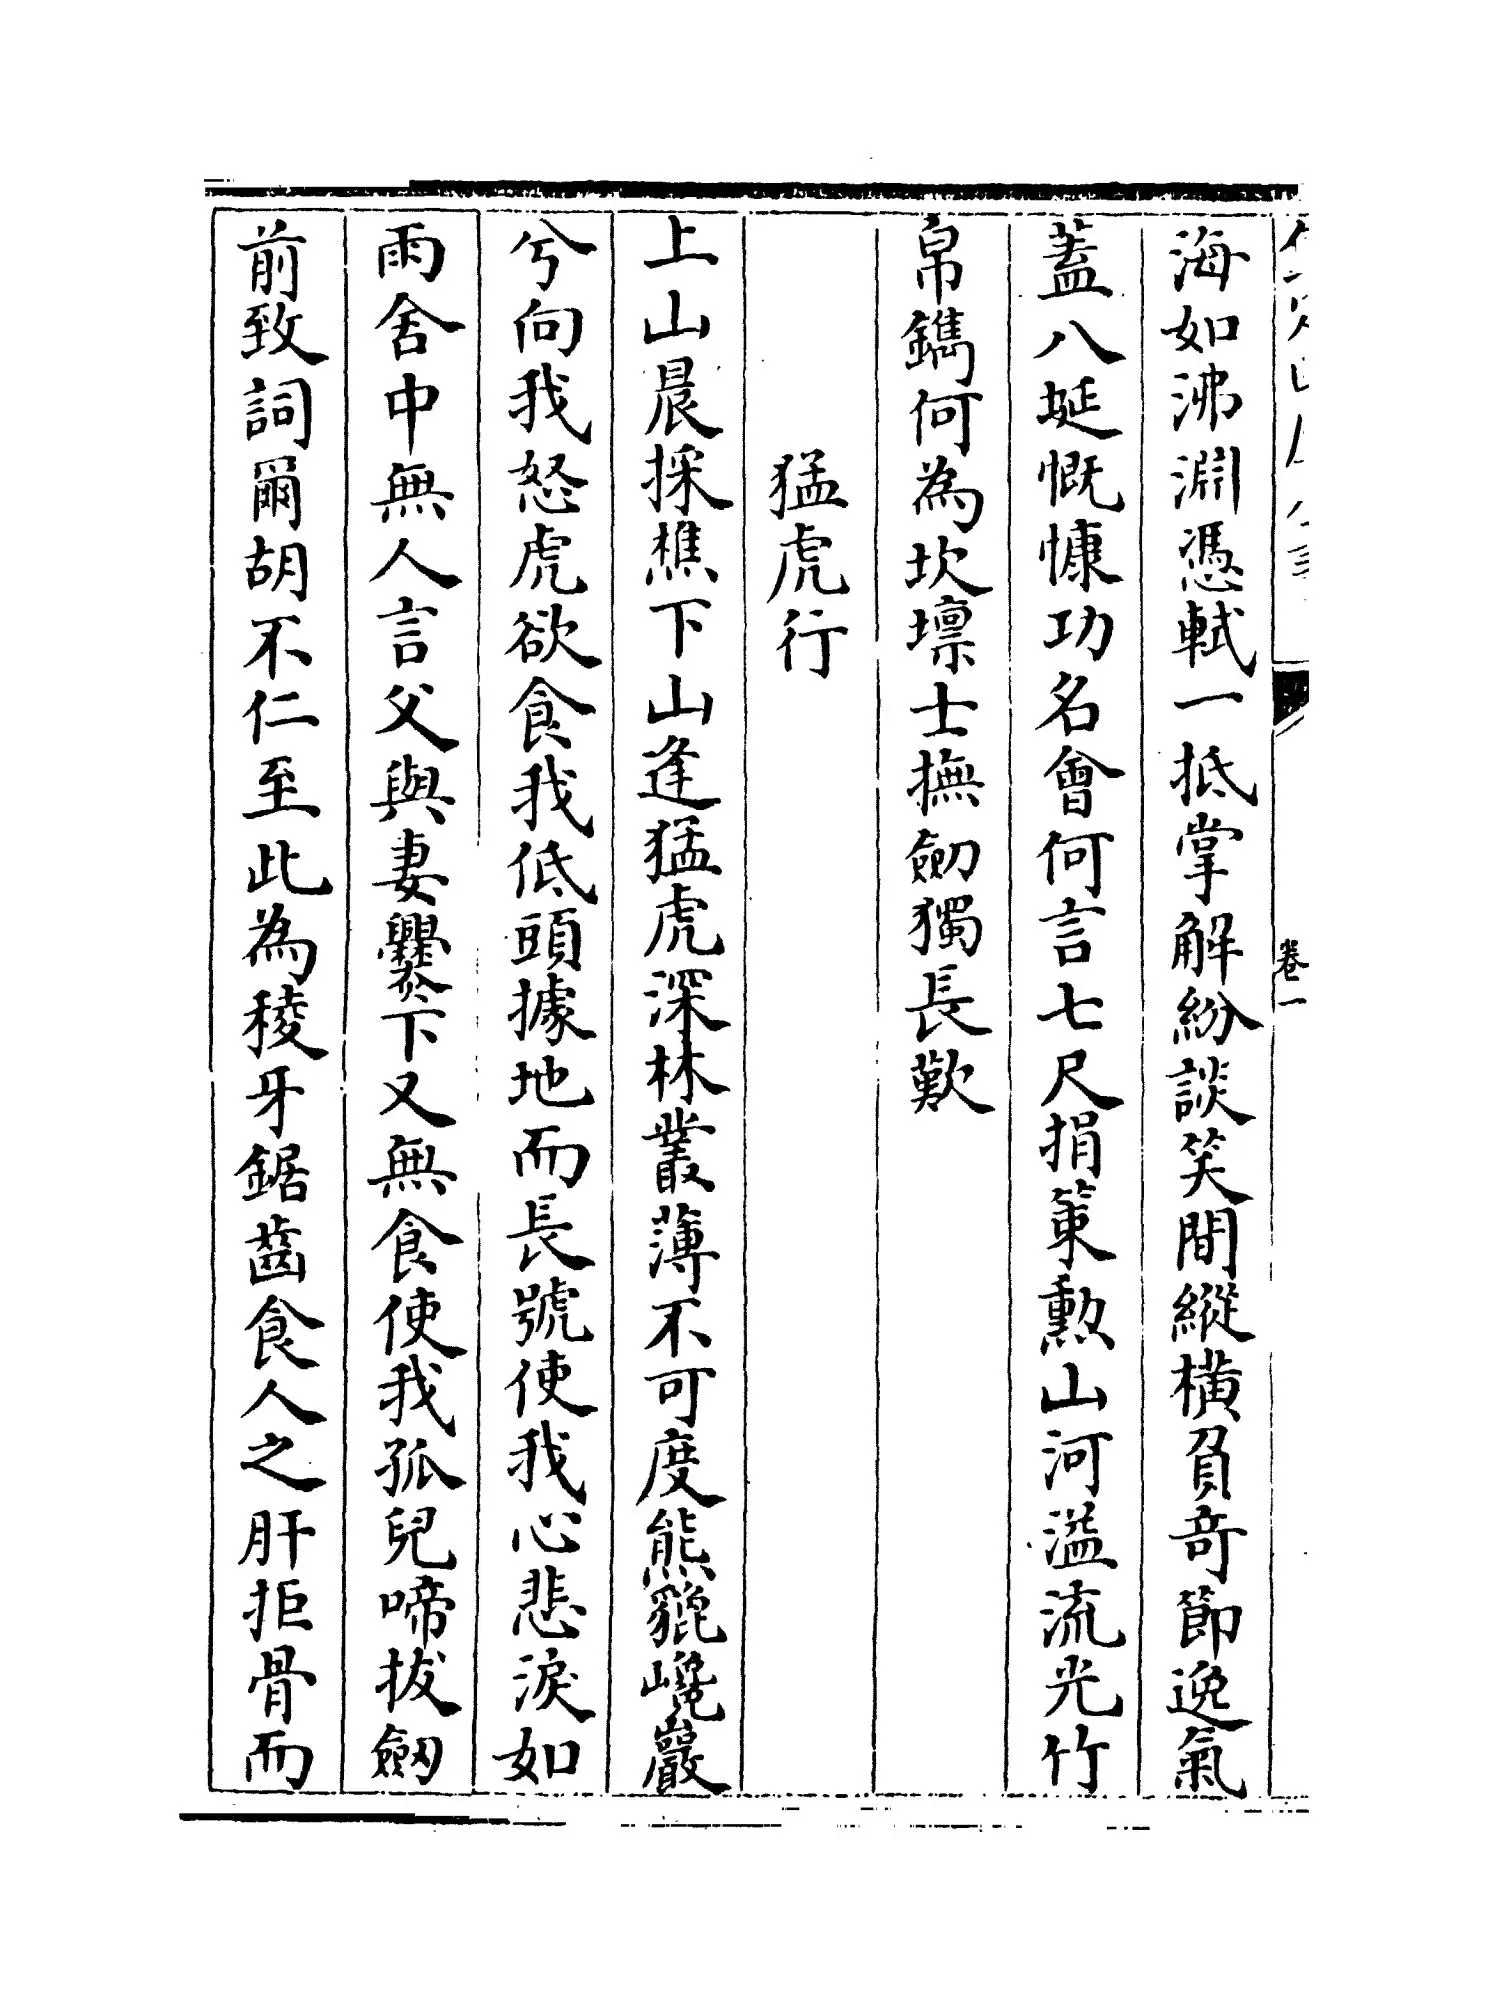 卷一
海如沸淵憑軾一抵掌解紛談笑間縱橫負奇節逸氣
蓋八埏慨慷功名會何言七尺捐策勲山河溢流光竹
帛鐫何為坎壈士撫劒獨長歎
猛虎行
上山晨採樵下山逢猛虎深林叢薄不可度熊貔巉巖
兮向我怒虎欲食我低頭據地而長號使我心悲淚如
雨舍中無人言父與妻爨下又無食使我孤兒啼拔劒
前致詞爾胡不仁至此為稜牙鋸齒食人之肝拒骨而